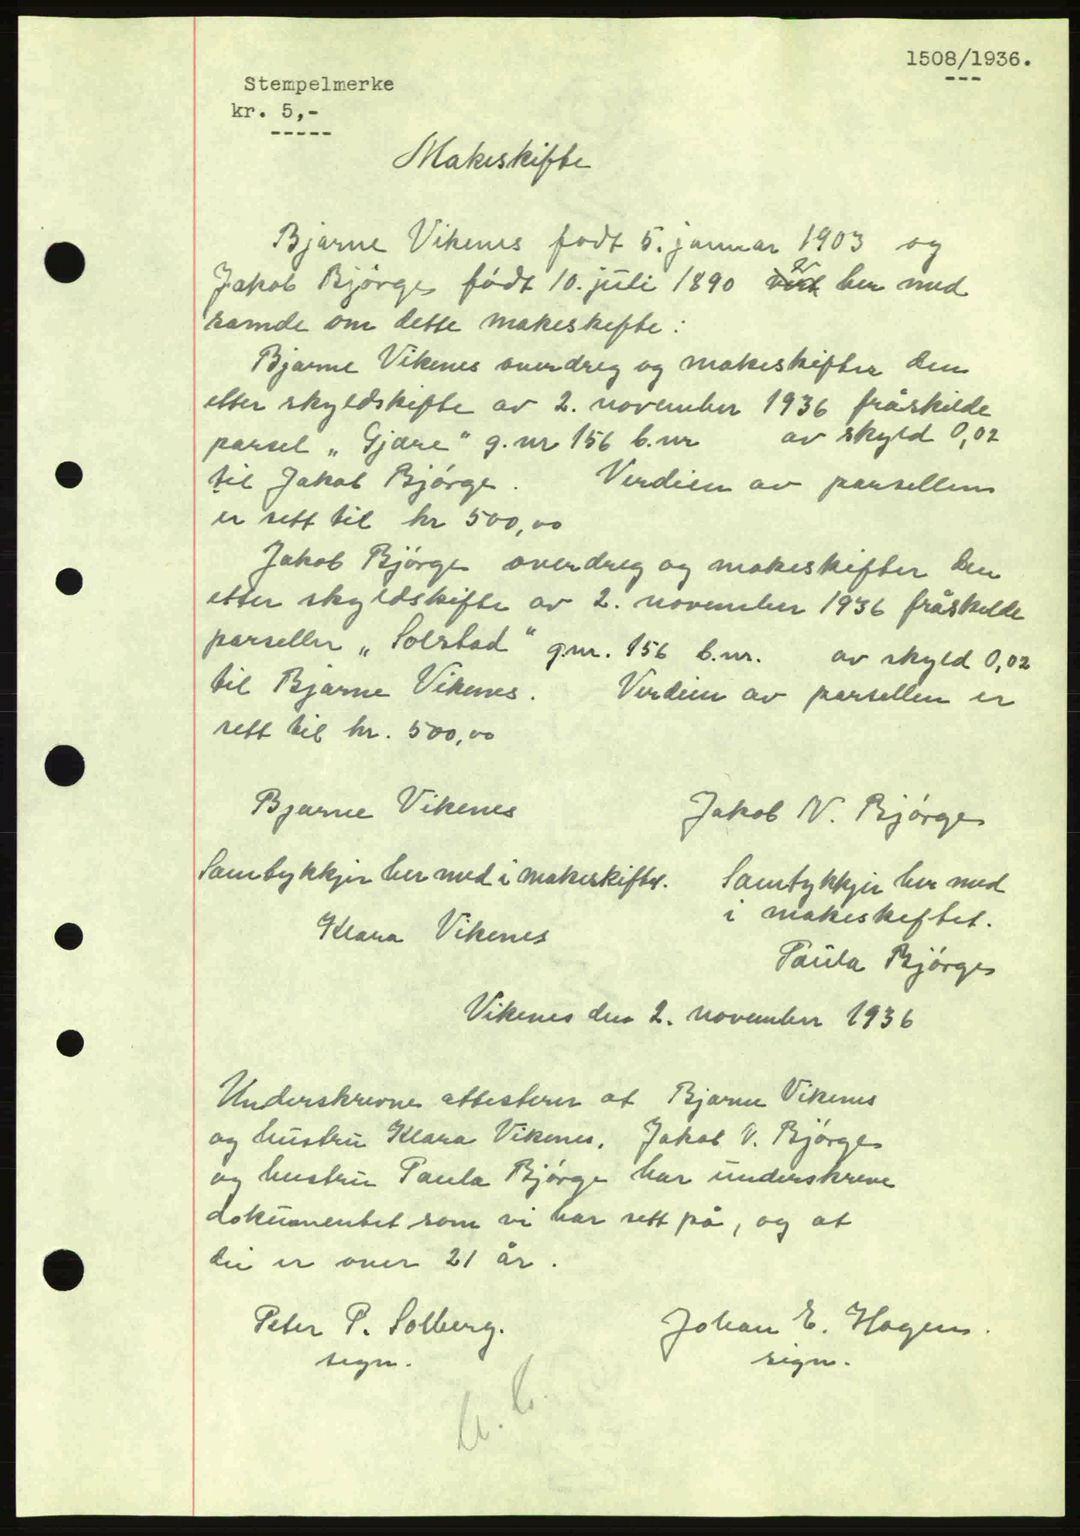 1508/1936.
---
Stempelmerke
kr. 5,-
-----
Makeskifte
Bjarne Vikenes født 5. januar 1903 og
Jakob Bjørge født 10. juli 1890 er her med
samde om dette makeskifte:
Bjarne Vikenes overdreg og makeskifter den
etter skyldskifte av 2. november 1936 fråskilde
parsel „Gjære“ g.nr 156 b.nr av skyld 0,02
til Jakob Bjørge. Verdien av parsellen
er sett til kr 500,00
Jakob Bjørge overdreg og makeskifter den
etter skyldskifte av 2. november 1936 fråskilde
parsellen „Solstad“ g.nr. 156 b.nr. av skyld 0,02
til Bjarne Vikenes. Verdien av parsellen er
sett til kr. 500,00
Bjarne Vikenes Jakob N. Bjørge
Samtykkjer her med i makeskiftet. Samtykkjer her med
i makeskiftet.
Klara Vikenes
Paula Bjørge
Vikenes den 2. november 1936
Underskrevne attesterer at Bjarne Vikenes
og hustru Klara Vikenes, Jakob V. Bjørge
og hustru Paula Bjørge har underskreve
dokumentet som vi har sett på, og at
dei er over 21 år.
Peter P. Solberg. Johan E. Hagen.
sign. sign.